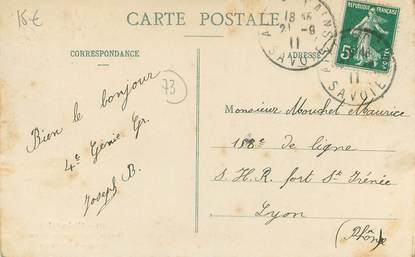 15€
CARTE POSTALE
CORRESPONDANCE
ADRESSE
73
Bien le bonjour
4e Génie Gr.
Joseph B.
18 45
21 - 9
11
SAVOIE
RÉPUBLIQUE FRANÇAISE
5c
POSTES
11
SAVOIE
Monsieur Mouchet Maurice
158e de ligne
S. H. R. fort St Irénée
Lyon
(Rhône)